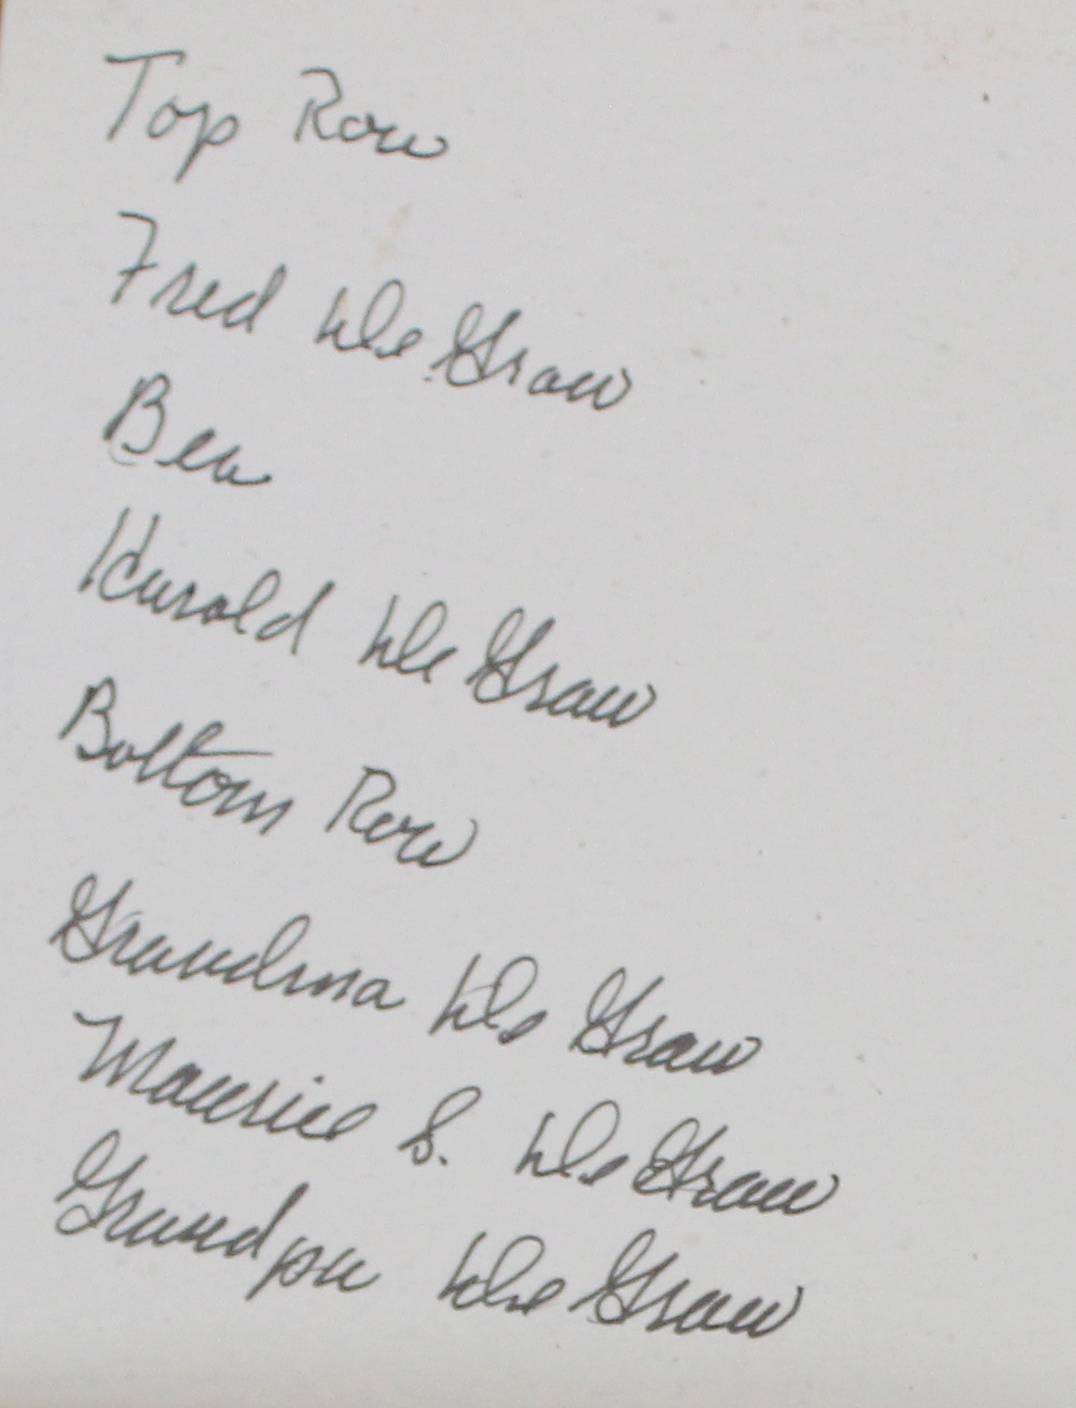 Top Row
Fred De Graw
Ben
Harold De Graw
Bottom Row
Grandma De Graw
Maurice S. De Graw
Grandpa De Graw